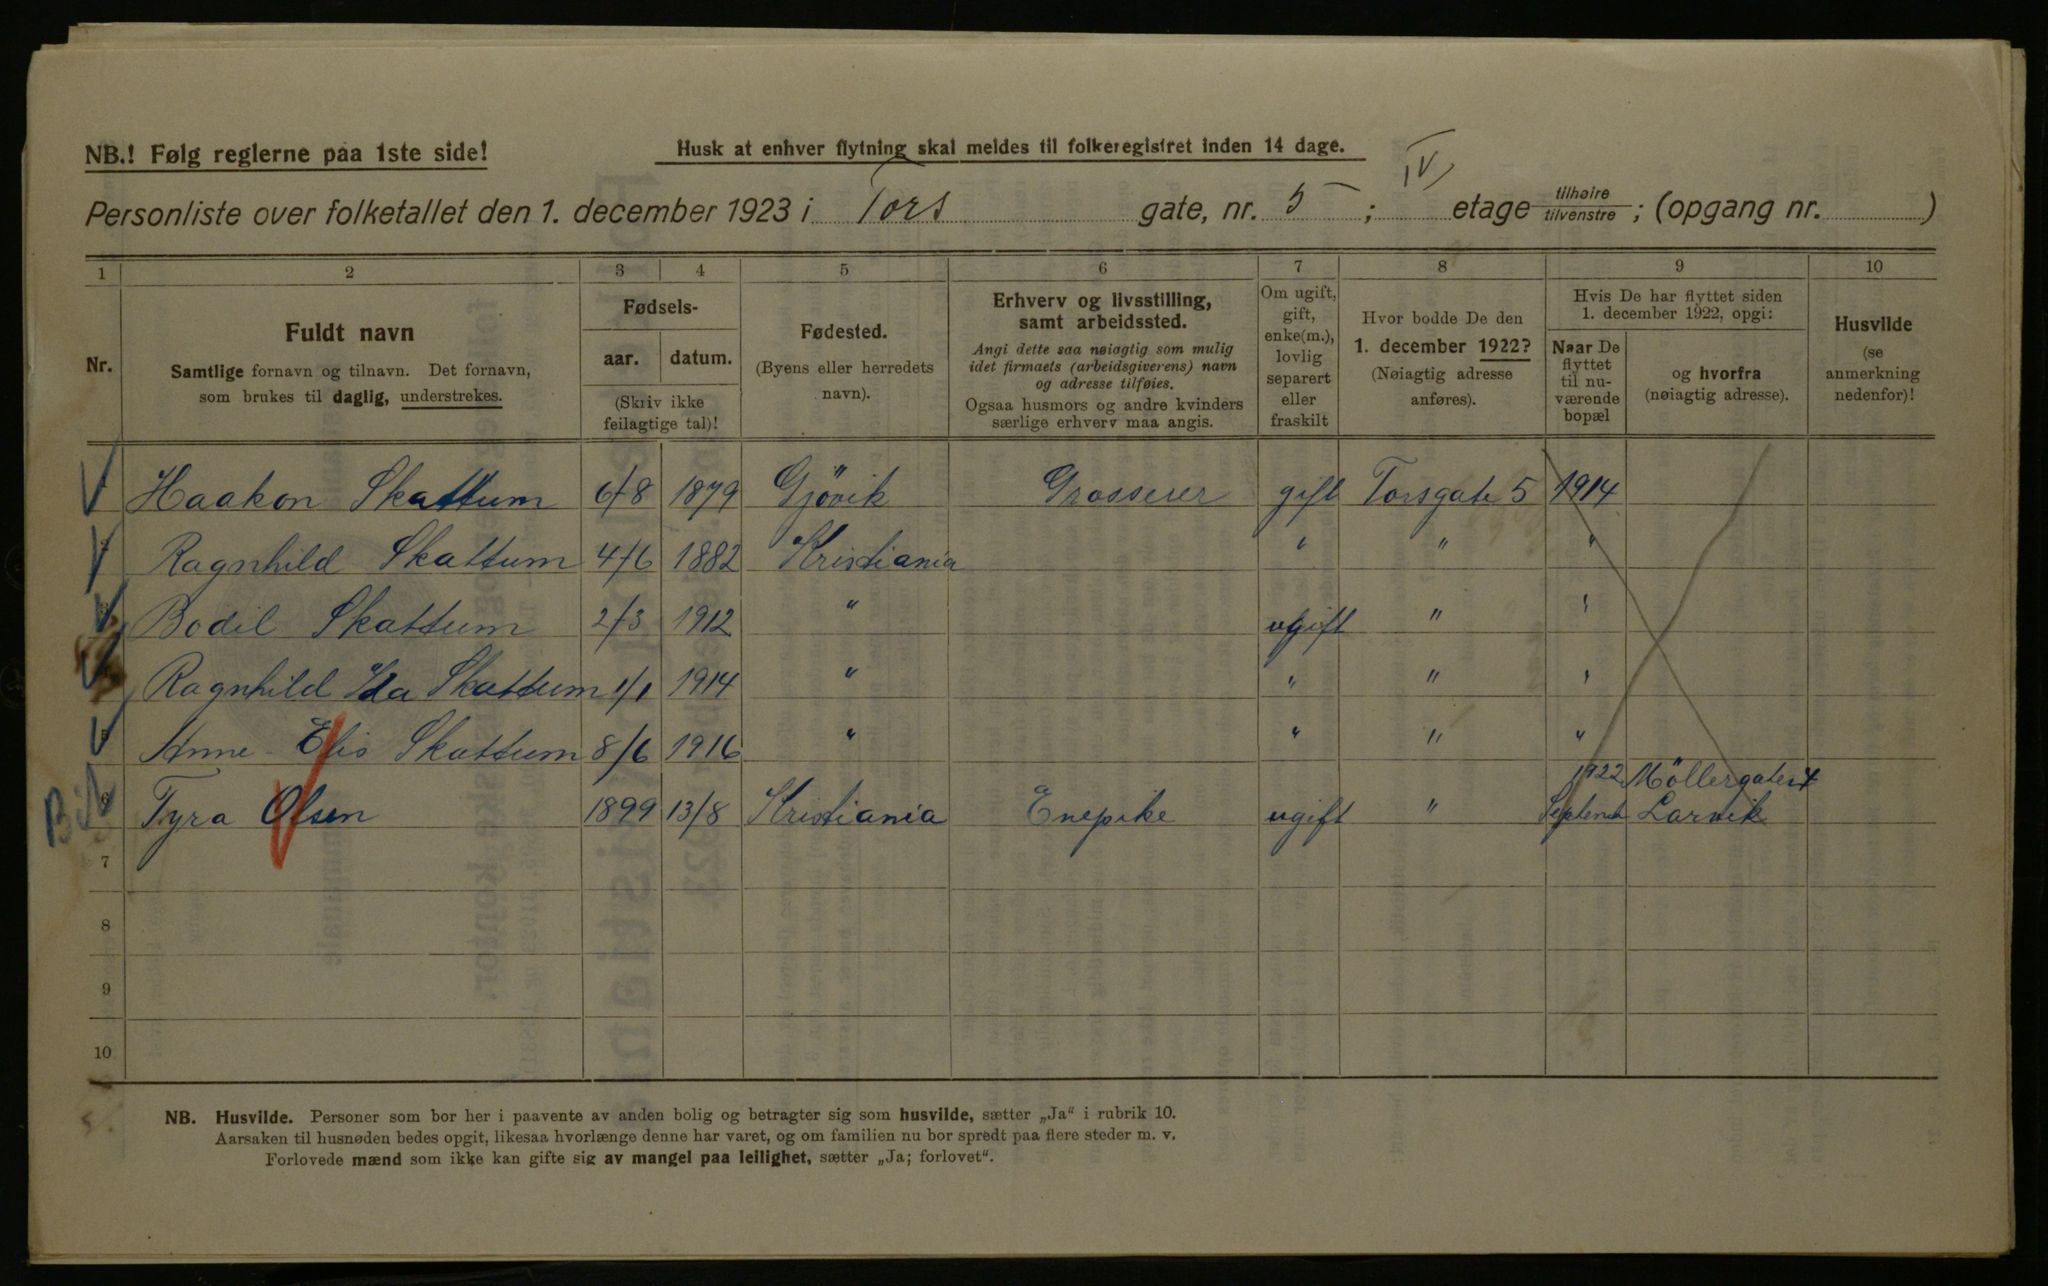 NB.! Følg reglerne paa 1ste side!
Husk at enhver flytning skal meldes til folkeregistret inden 14 dage.
Personliste over folketallet den 1. december 1923 i Tors gate, nr. 5 ; IV, etage tilhøire/tilvenstre ; (opgang nr. )
1 2 3 4 5 6 7 8 9 10
Nr.
Fuldt navn
Samtlige fornavn og tilnavn. Det fornavn,
som brukes til daglig, understrekes.
Fødsels-
aar. datum.
(Skriv ikke
feilagtige tal)!
Fødested.
(Byens eller herredets
navn).
Erhverv og livsstilling,
samt arbeidssted.
Angi dette saa nøiagtig som mulig
idet firmaets (arbeidsgiverens) navn
og adresse tilføies.
Ogsaa husmors og andre kvinders
særlige erhverv maa angis.
Om ugift,
gift,
enke(m.),
lovlig
separert
eller
fraskilt
Hvor bodde De den
1. december 1922?
(Nøiagtig adresse
anføres).
Hvis De har flyttet siden
1. december 1922, opgi:
Naar De
flyttet
til nu-
værende
bopæl
og hvorfra
(nøiagtig adresse).
Husvilde
(se
anmerkning
nedenfor)!
Haakon Skattum 6/8 1879 Gjövik Grosserer gift Torsgate 5 1914
Ragnhild Skattum 4/6 1882 Kristiania " " "
Bodil Skattum 2/3 1912 " ugift " "
Ragnhild Ida Skattum 1/1 1914 " " " "
5 Anne-Elis Skattum 8/6 1916 " " " "
1922 Möllergaten 4
6 Tyra Olsen 1899 13/8 Kristiania Enepike ugift " Larvik
7
8
9
10
NB. Husvilde. Personer som bor her i paavente av anden bolig og betragter sig som husvilde, sætter „Ja" i rubrik 10.
Aarsaken til husnøden bedes opgit, likesaa hvorlænge denne har varet, og om familien nu bor spredt paa flere steder m. v.
Forlovede mænd som ikke kan gifte sig av mangel paa leilighet, sætter „Ja; forlovet".